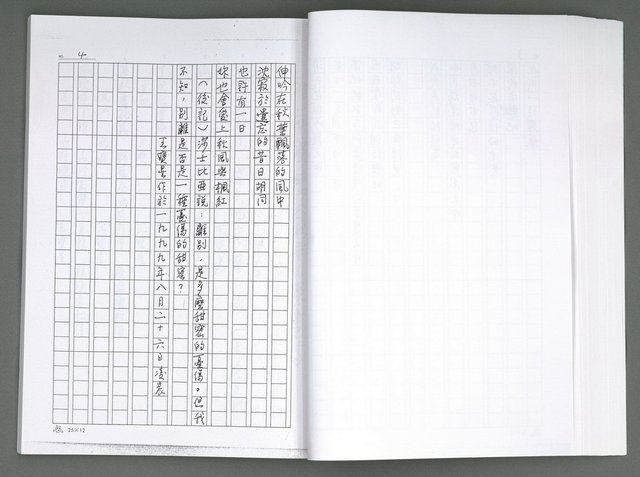 呻吟在秋葉飄落的風中
沈寂於遺忘的昔日胡同
也許有一日
妳也會愛上秋風與楓紅
(後記)莎士比亞說:離別,是多麼甜蜜的憂傷。但我
不知,別離是否是一種憂傷的甜蜜?
作於一九九九年八月二十六日凌晨
4
25×12